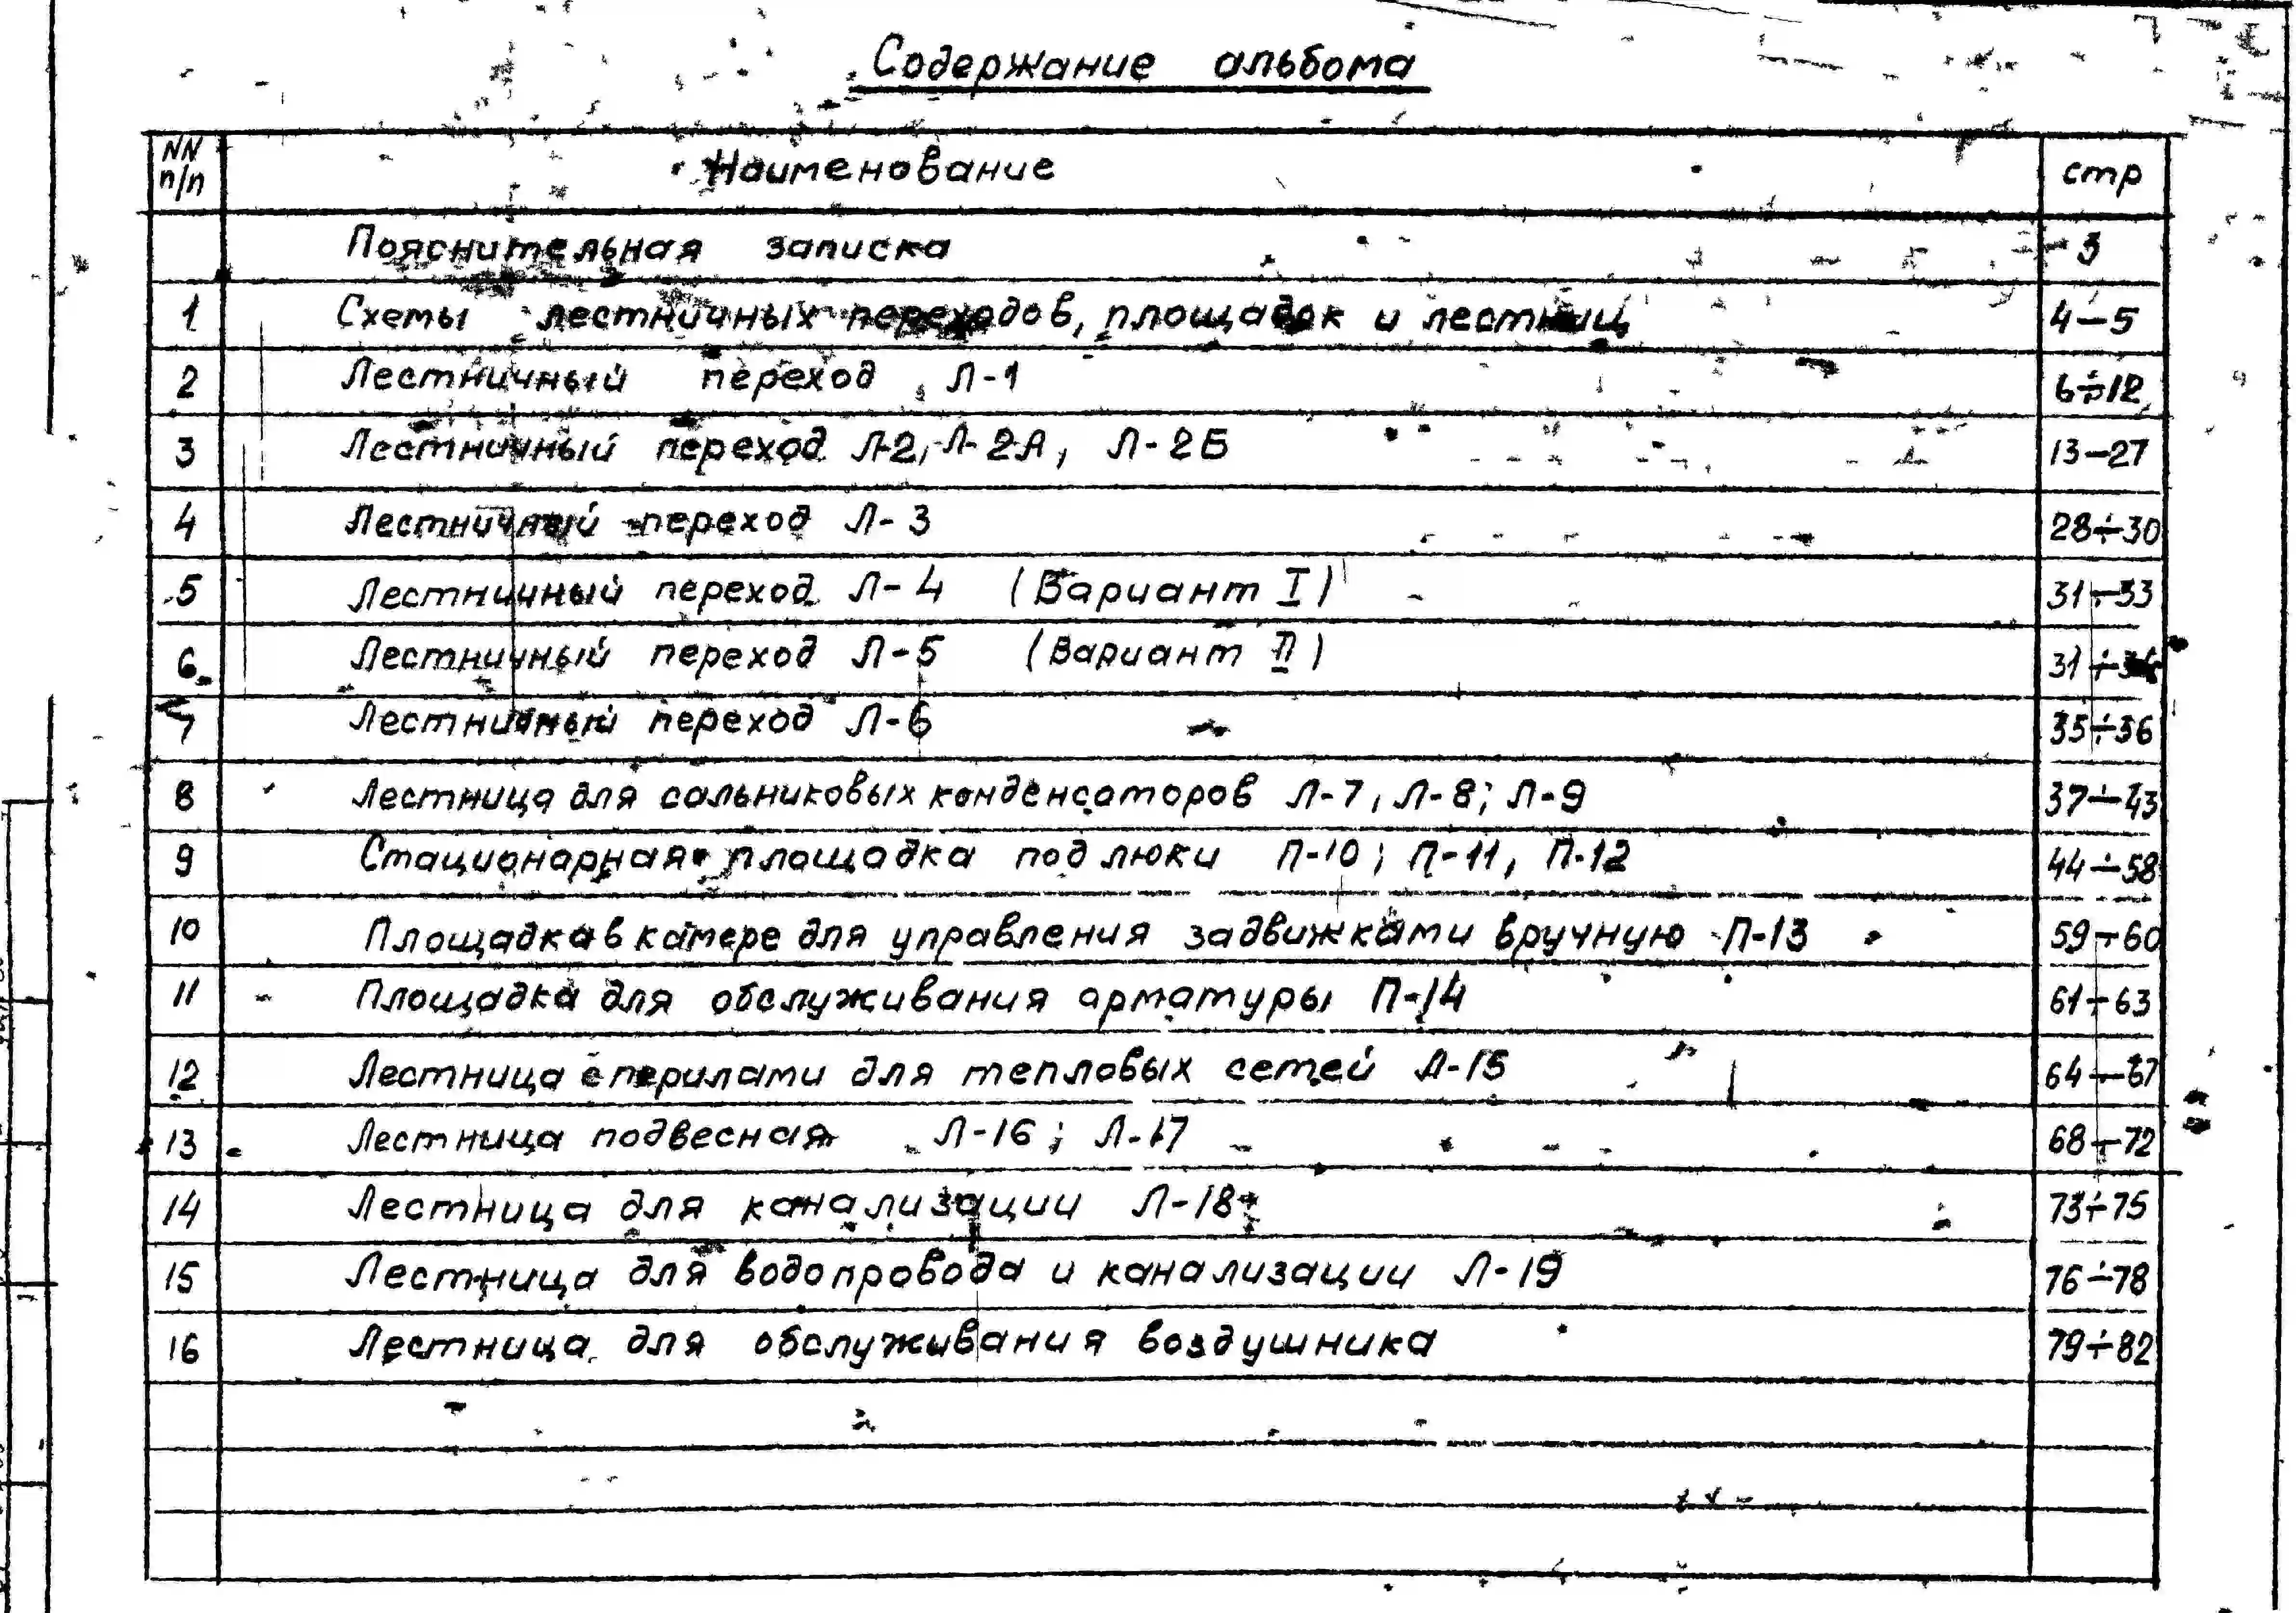 Содержание альбома
NN п/п Наименование стр
Пояснительная записка 3
1 Схемы лестничных переходов, площадок и лестниц 4–5
2 Лестничный переход Л-1 6÷12
3 Лестничный переход Л-2, Л-2А, Л-2Б 13–27
4 Лестничный переход Л-3 28÷30
5 Лестничный переход Л-4 (Вариант I) 31÷33
6 Лестничный переход Л-5 (Вариант II) 31÷34
7 Лестничный переход Л-6 35÷36
8 Лестница для сальниковых конденсаторов Л-7, Л-8; Л-9 37÷43
9 Стационарная площадка под люки П-10; П-11, П-12 44÷58
10 Площадка в камере для управления задвижками вручную П-13 59÷60
11 Площадка для обслуживания арматуры П-14 61÷63
12 Лестница с перилами для тепловых сетей Л-15 64÷67
13 Лестница подвесная Л-16; Л-17 68÷72
14 Лестница для канализации Л-18 73÷75
15 Лестница для водопровода и канализации Л-19 76÷78
16 Лестница для обслуживания воздушника 79÷82